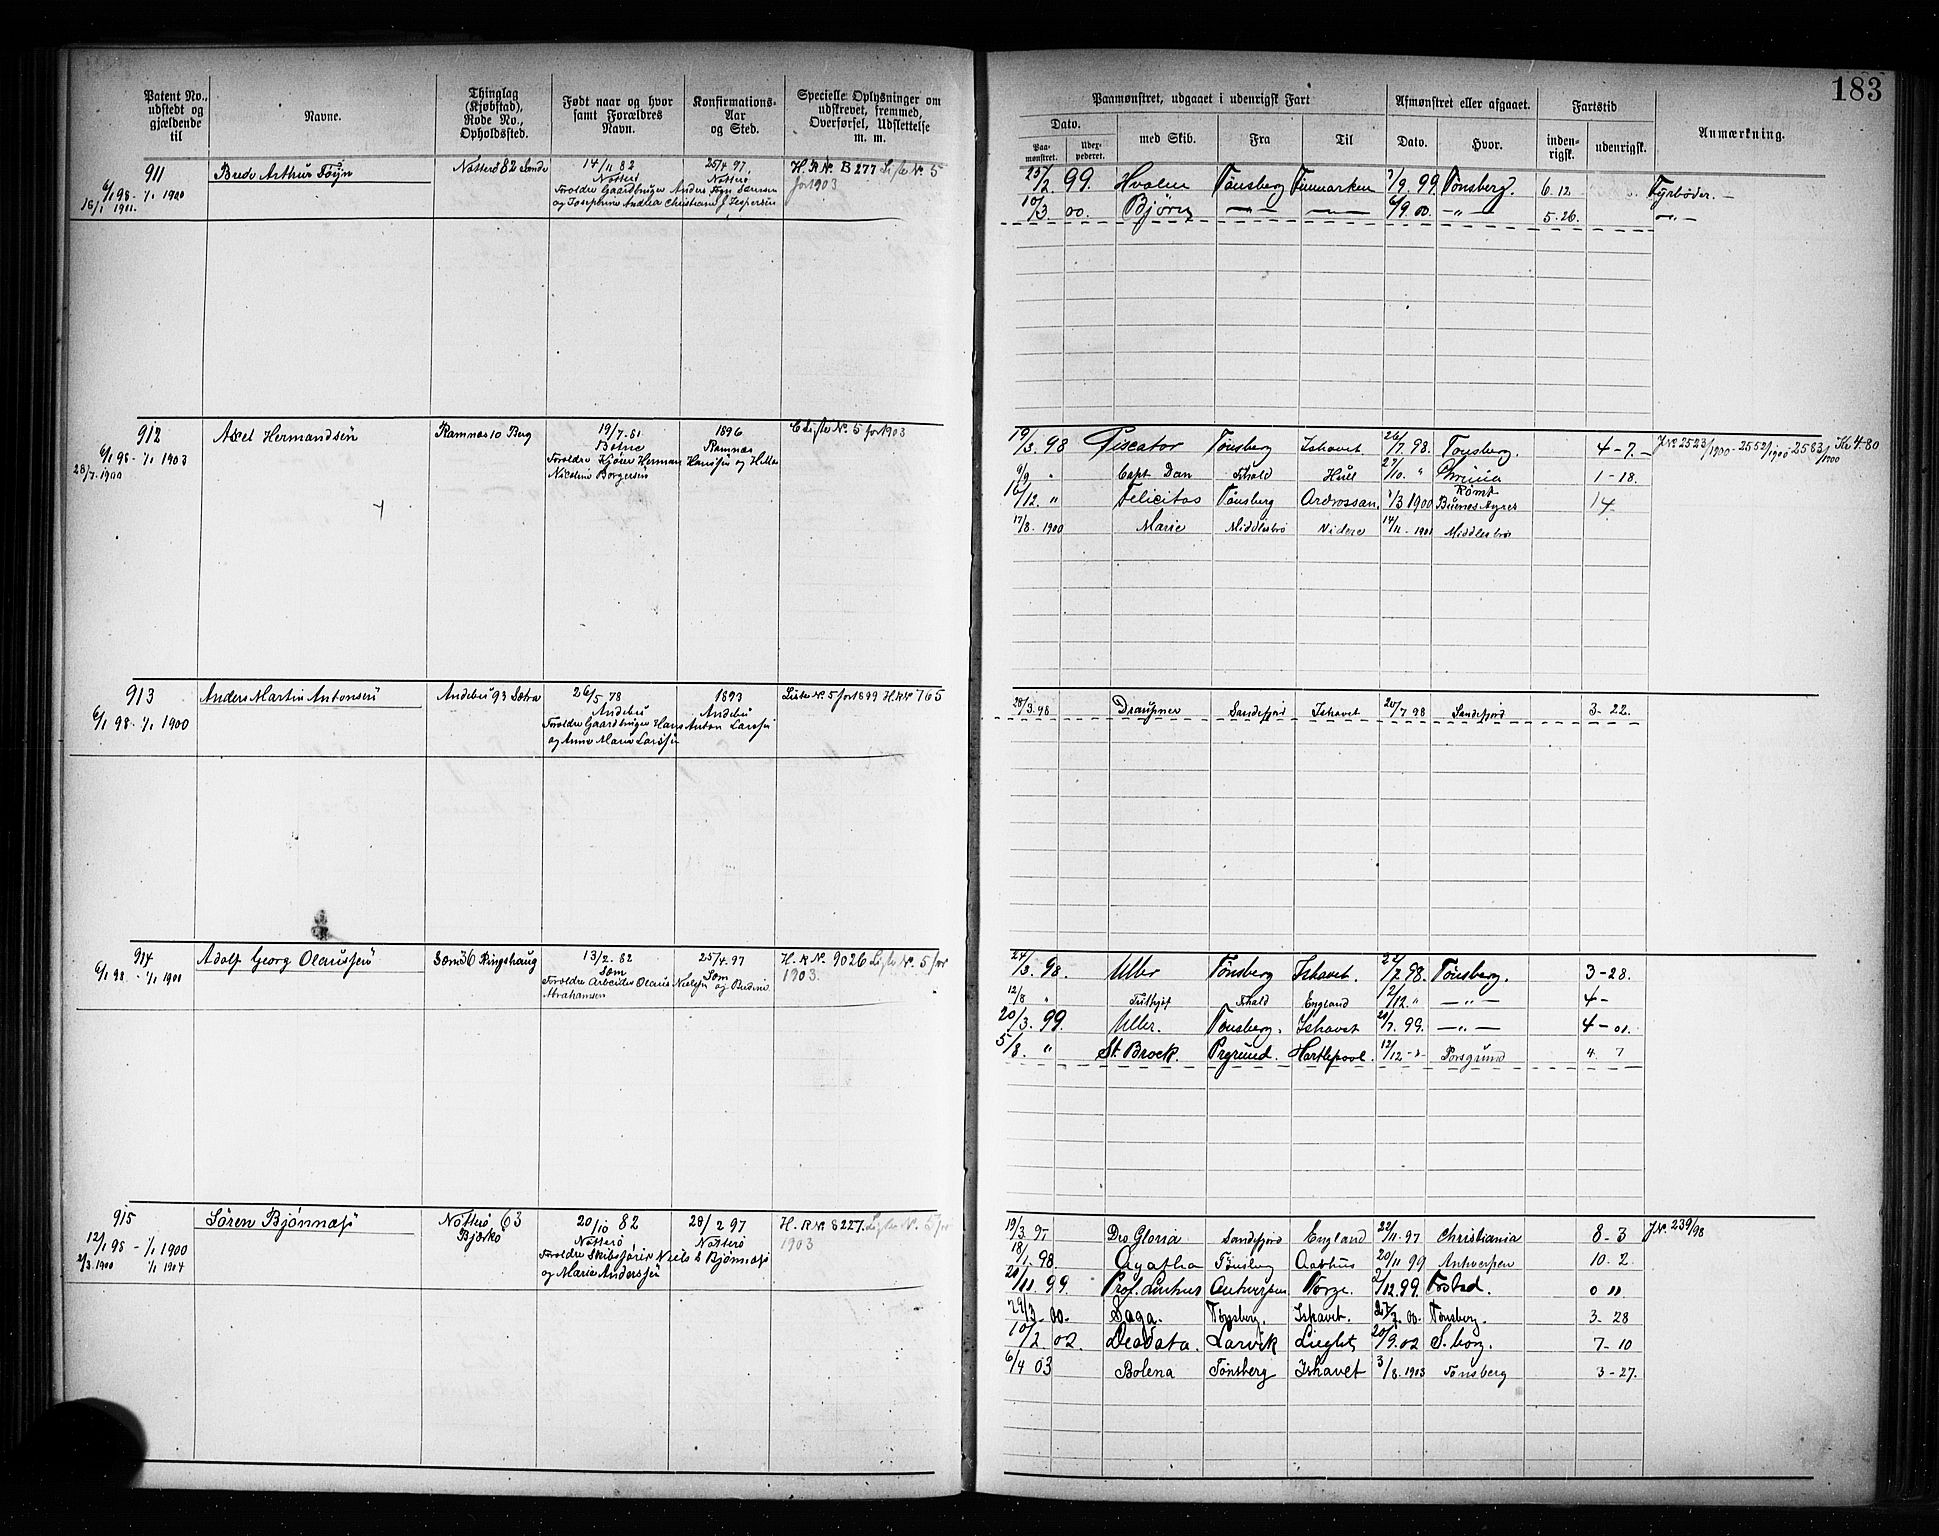 183
Patent No., udstedt og gjældende til
Navne.
Thinglag (Kjøbstad), Rode No., Opholdssted.
Født naar og hvor samt Forældres Navn.
Konfirmations-Aar og Sted.
Specielle Oplysninger om udskrevet, fremmed, Overførsel, Udslettelse m. m.
Paamønstret, udgaaet i udenrigsk Fart
Afmønstret eller afgaaet.
Fartstid
Anmærkning.
Dato.
Paamønstret.
Udexpederet.
med Skib.
Fra
Til
Dato.
Hvor.
indenrigsk.
udenrigsk.
911
6/1 98 - 1/1 1900
16/1 1901.
Brede Arthur Føyn
Nøtterø 82 Sande
14/11 82
Nøtterø
Forældre Gaardbruger Anders Føyn Jensen
og Josephine Andrea Christiane f Jespersen
25/4 97.
Nøtterø
H. R. Nr. B 277 Liste Nr. 5
for 1903
23/2 99. Hvalen Tønsberg Finmarken 7/9. 99. Tønsberg. 6. 12 Fyrbøder. -
10/3 00. Bjørn — — 6/9 00. - " - 5. 26. - " -
912
6/1 98 - 1/1 1903
28/7. 1900
Axel Hermandsen
Ramnæs 10 Berg
19/7. 81
Botne
Forældre Kjører Herman Hanssen og Hilda
Nicoline Borgersen
1896
Ramnæs
Liste Nr. 5 for 1903
19/3. 98 Piscator Tønsberg Ishavet 26/7. 98. Tønsberg. 4 - 7. - J. Nr. 2523/1900 - 2552/1900 2583/1900 Kr 4.80
9/9 " Capt Dan Fshald Hull 27/10. " 1 - 18.
16/12. " Felicitas Tønsberg Ardrossan. 1/3 1900 Rømt Buenos Ayres 14
17/8. 1900 Marie Middlesbro 14/11 - 1900 Middlesbro
913
6/1 98 - 1/1 1900
Anders Martin Antonsen
Andebu 93 Sætre
26/5 78
Andebu
Forældre Gaardbruger Hans Anton Larssen
og Anne Marie Larssen
1893
Andebu
Liste Nr. 5 for 1899 H. R. Nr. 765
28/3. 98 Draupner Sandefjord Ishavet 20/7 98 Sandefjord 3 - 22.
914
6/1 98. - 1/1 1901
Adolf Georg Olaussen
Sæm 36 Ringshaug
13/2. 82
Sæm
Forældre Arbeider Olaus Nielsen og Bredine
Abrahamsen
25/4. 97
Sæm
H. R. Nr. 9026 Liste Nr. 5 for
1903.
24/3. 98. Uller Tønsberg Ishavet. 22/7 98. Tønsberg. 3 - 28.
12/8 " Frithjof Fshald England 12/12. " - " - 4 -
20/3. 99. Uller. Tønsberg. Ishavet 20/7. 99. - " - 4 - 01.
5/8. " St. Brock. Prgrund. Hartlepool. 12/12 - " Porsgrund 4. 7
915
12/1 98 - 1/1 1900
2/3. 1900 1/1 1904
Søren Bjønnæs
Nøtterø 63
Bjerkø
20/10 82
Nøtterø
Forældre Skibsfører Niels S Bjønnæs
og Marie Anderssen
28/2 97
Nøtterø
H. R. Nr. 8227. Liste Nr. 5 for
1903
19/3. 97 Deo Gloria Sandefjord England 22/11. 97 Christiania 8 - 3 J. Nr. 239/98
18/1. 98 Agatha Tønsberg Aarhus 20/11 99 Antwerpen 10. 2.
20/11 99. Antwerpen Norge. 2/12. 99. Frstad. 0 11
29/3. 00. Saga. Tønsberg. Ishavet. 27/7. 00. Tønsberg. 3 - 28
10/2. 02. Deodata. Larvik 20/9. 02 S.borg. 7 - 10
6/4 03 Bolena Tønsberg Ishavet 3/8. 1903 Tønsberg 3 - 27.